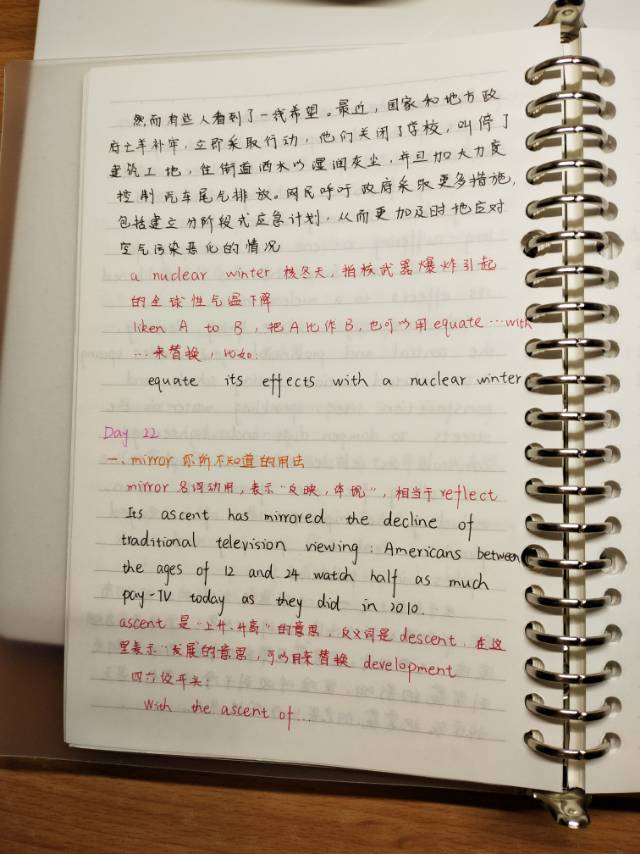 然而有些人看到了一线希望。最近，国家和地方政
府亡羊补牢，立即采取行动，他们关闭了学校，叫停了
建筑工地，往街道洒水以湿润灰尘，并且加大力度
控制汽车尾气排放。网民呼吁政府采取更多措施，
包括建立分阶段式应急计划，从而更加及时地应对
空气污染恶化的情况
a nuclear winter 核冬天，指核武器爆炸引起
的全球性气温下降
liken A to B，把A比作B，也可以用equate …with
…来替换，比如：
equate its effects with a nuclear winter
Day 22
一、mirror 你所不知道的用法
mirror 名词动用，表示“反映，体现”，相当于reflect
Its ascent has mirrored the decline of
traditional television viewing : Americans between
the ages of 12 and 24 watch half as much
pay-TV today as they did in 2010.
ascent 是“上升、升高”的意思，反义词是descent，在这
里表示“发展”的意思，可以用来替换 development
四六级开头：
With the ascent of…